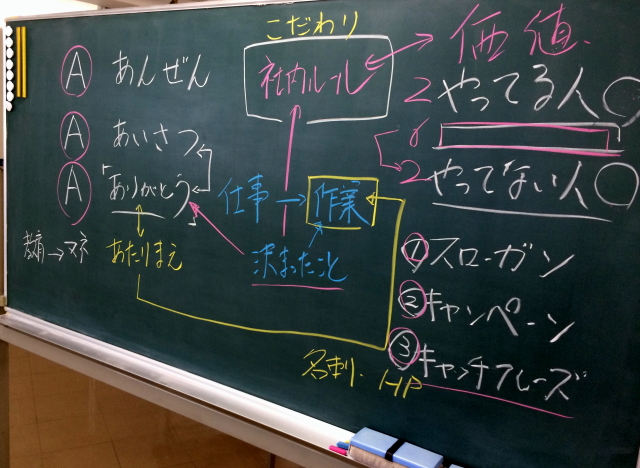 こだわり
社内ルール
価値
Ⓐ あんぜん
Ⓐ あいさつ
Ⓐ 「ありがとう」
教育→マネ
あたりまえ
仕事→作業
決まったこと
2 やってる人〇
6
2 やってない人〇
①スローガン
②キャンペーン
③キャッチフレーズ
名刺.HP